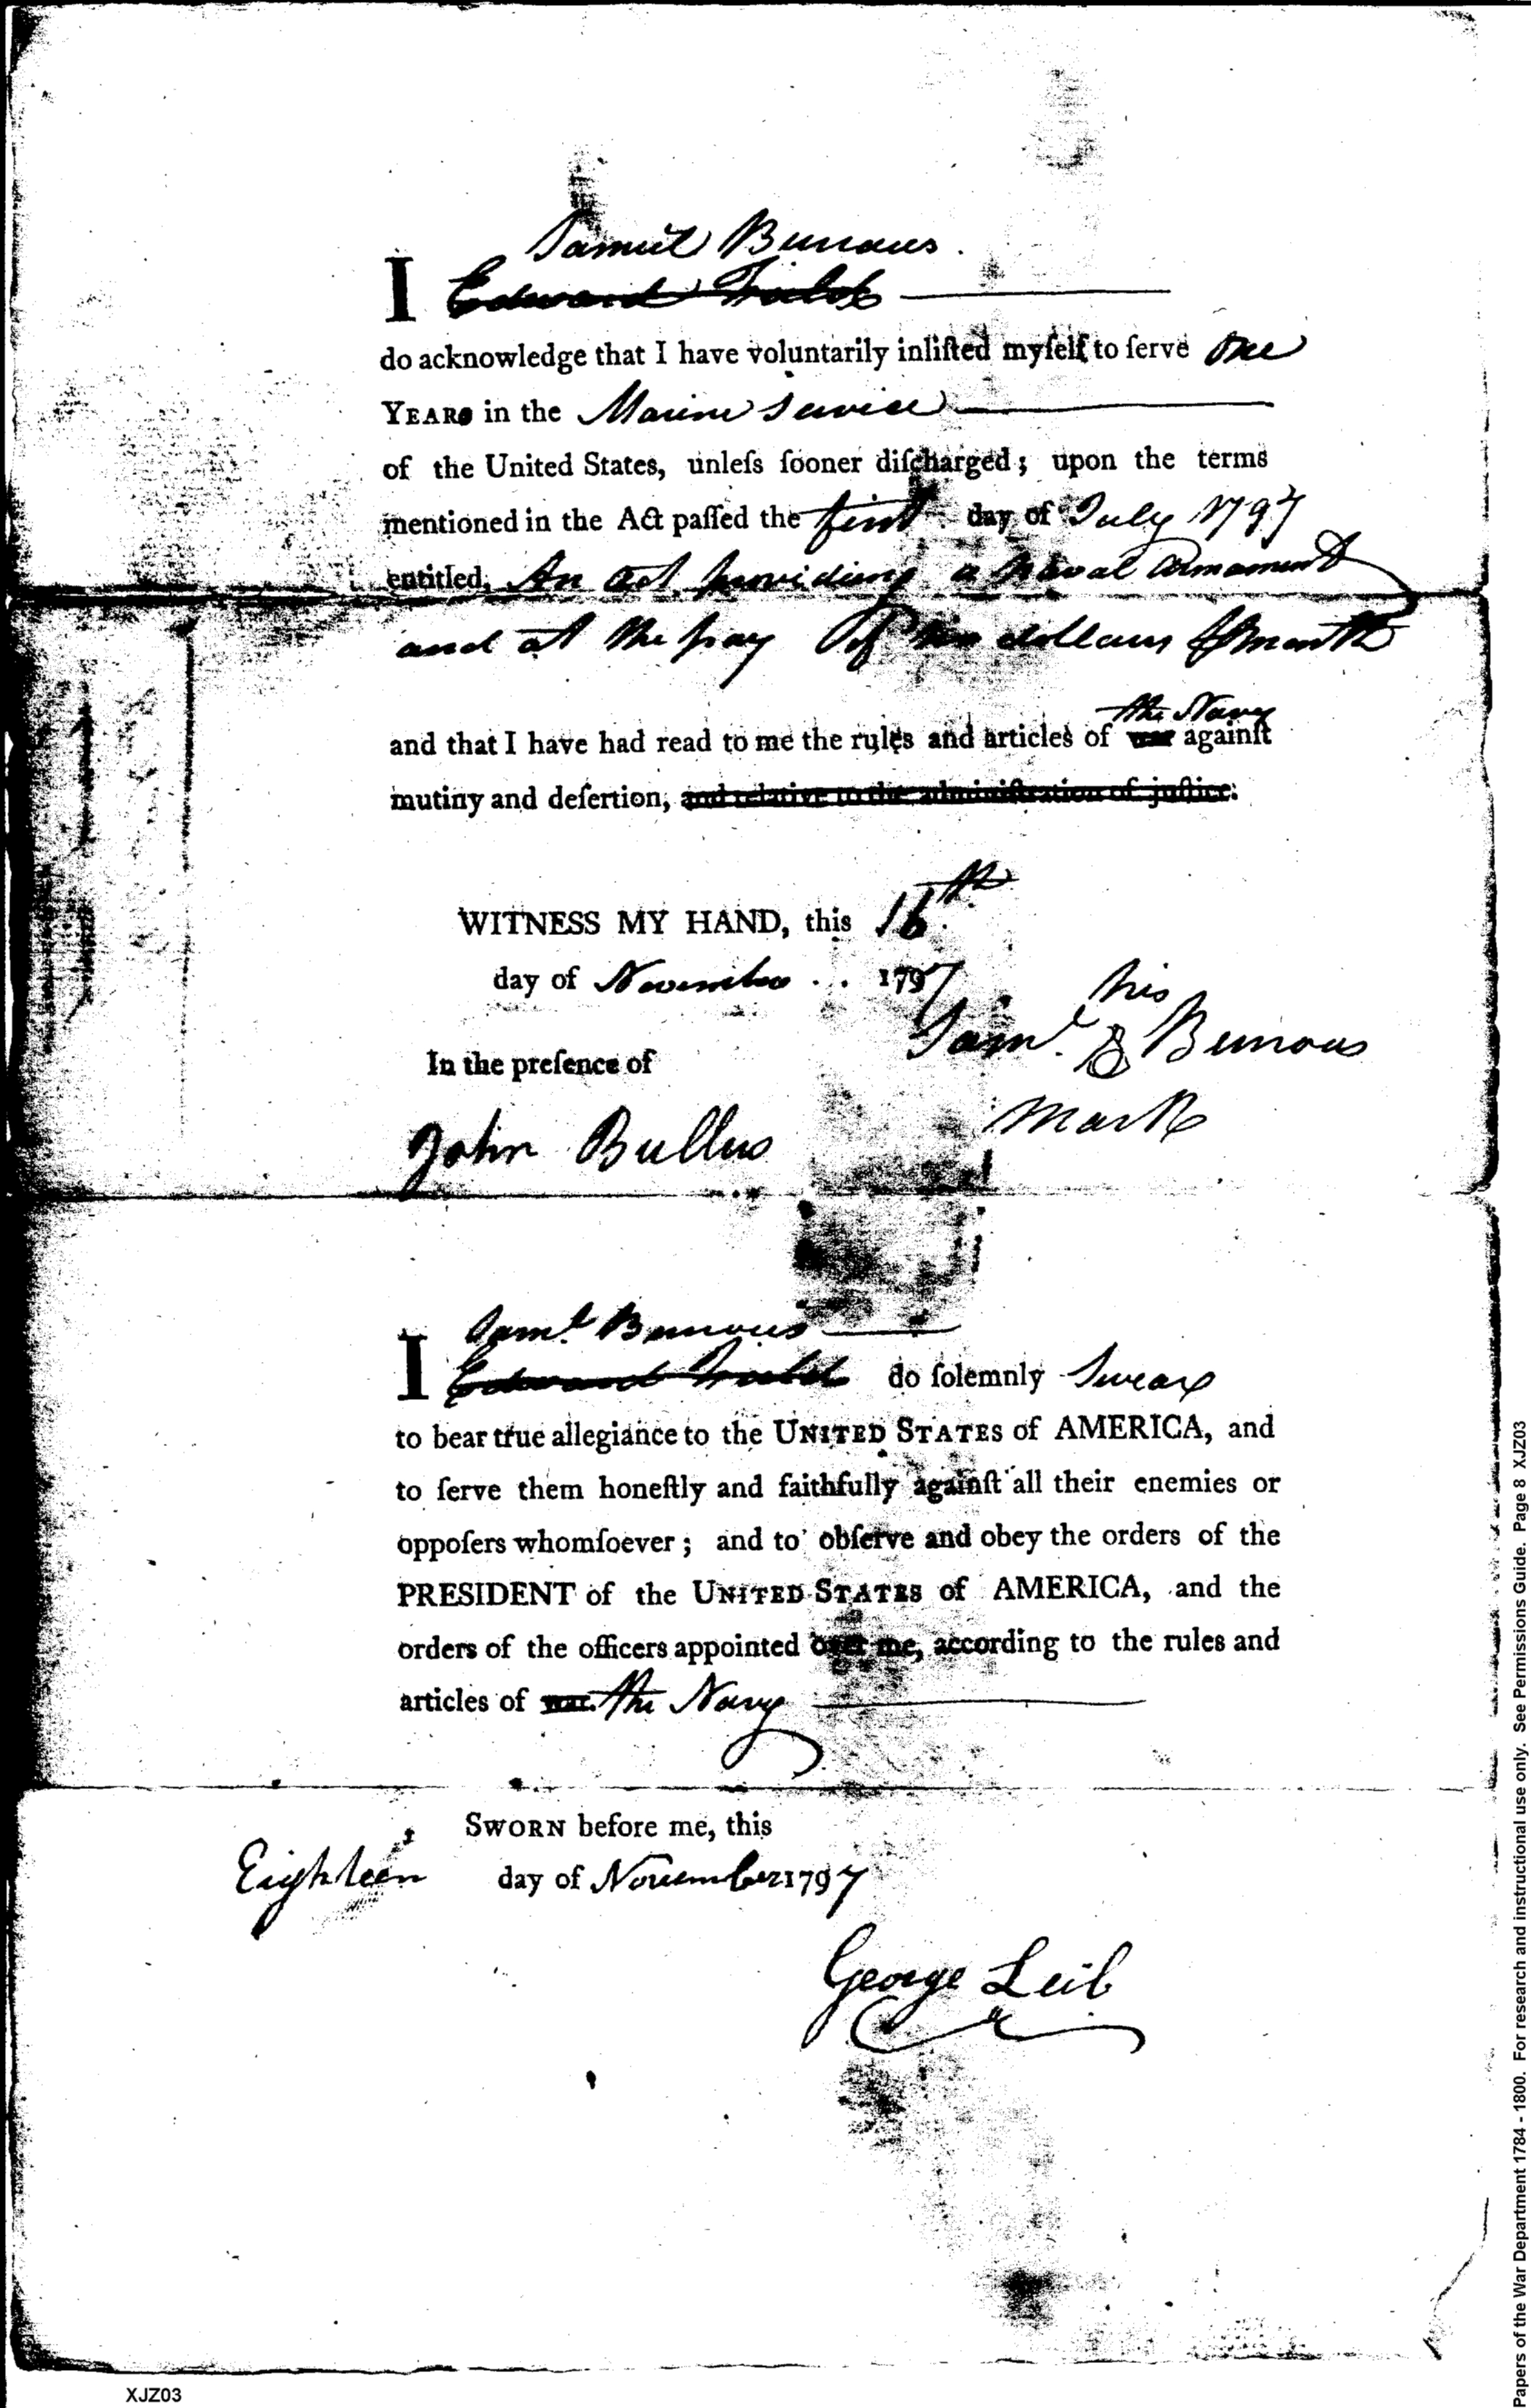 Samuel Burrows.
I Edward Fields
do acknowledge that I have voluntarily inliſted myſelf to ſerve One
YEARS in the Marine Service
of the United States, unleſs ſooner diſcharged; upon the terms
mentioned in the Act paſſed the first day of July 1797
entitled, An Act providing a Naval Armament
and at the pay of ten dollars ⅌ month
the Navy
and that I have had read to me the rules and articles of war againſt
mutiny and deſertion, and relative to the adminiſtration of juſtice:
WITNESS MY HAND, this 16th.
day of November 1797
his
Saml. B Burrows
mark
In the preſence of
John Bullus
Saml. Burrows
I Edward Fields do ſolemnly Swear
to bear true allegiance to the UNITED STATES of AMERICA, and
to ſerve them honeſtly and faithfully againſt all their enemies or
oppoſers whomſoever; and to obſerve and obey the orders of the
PRESIDENT of the UNITED STATES of AMERICA, and the
orders of the officers appointed over me, according to the rules and
articles of war. the Navy
SWORN before me, this
Eighteen day of November 1797
George Leib
XJZ03
Papers of the War Department 1784 - 1800. For research and instructional use only. See Permissions Guide. Page 8 XJZ03